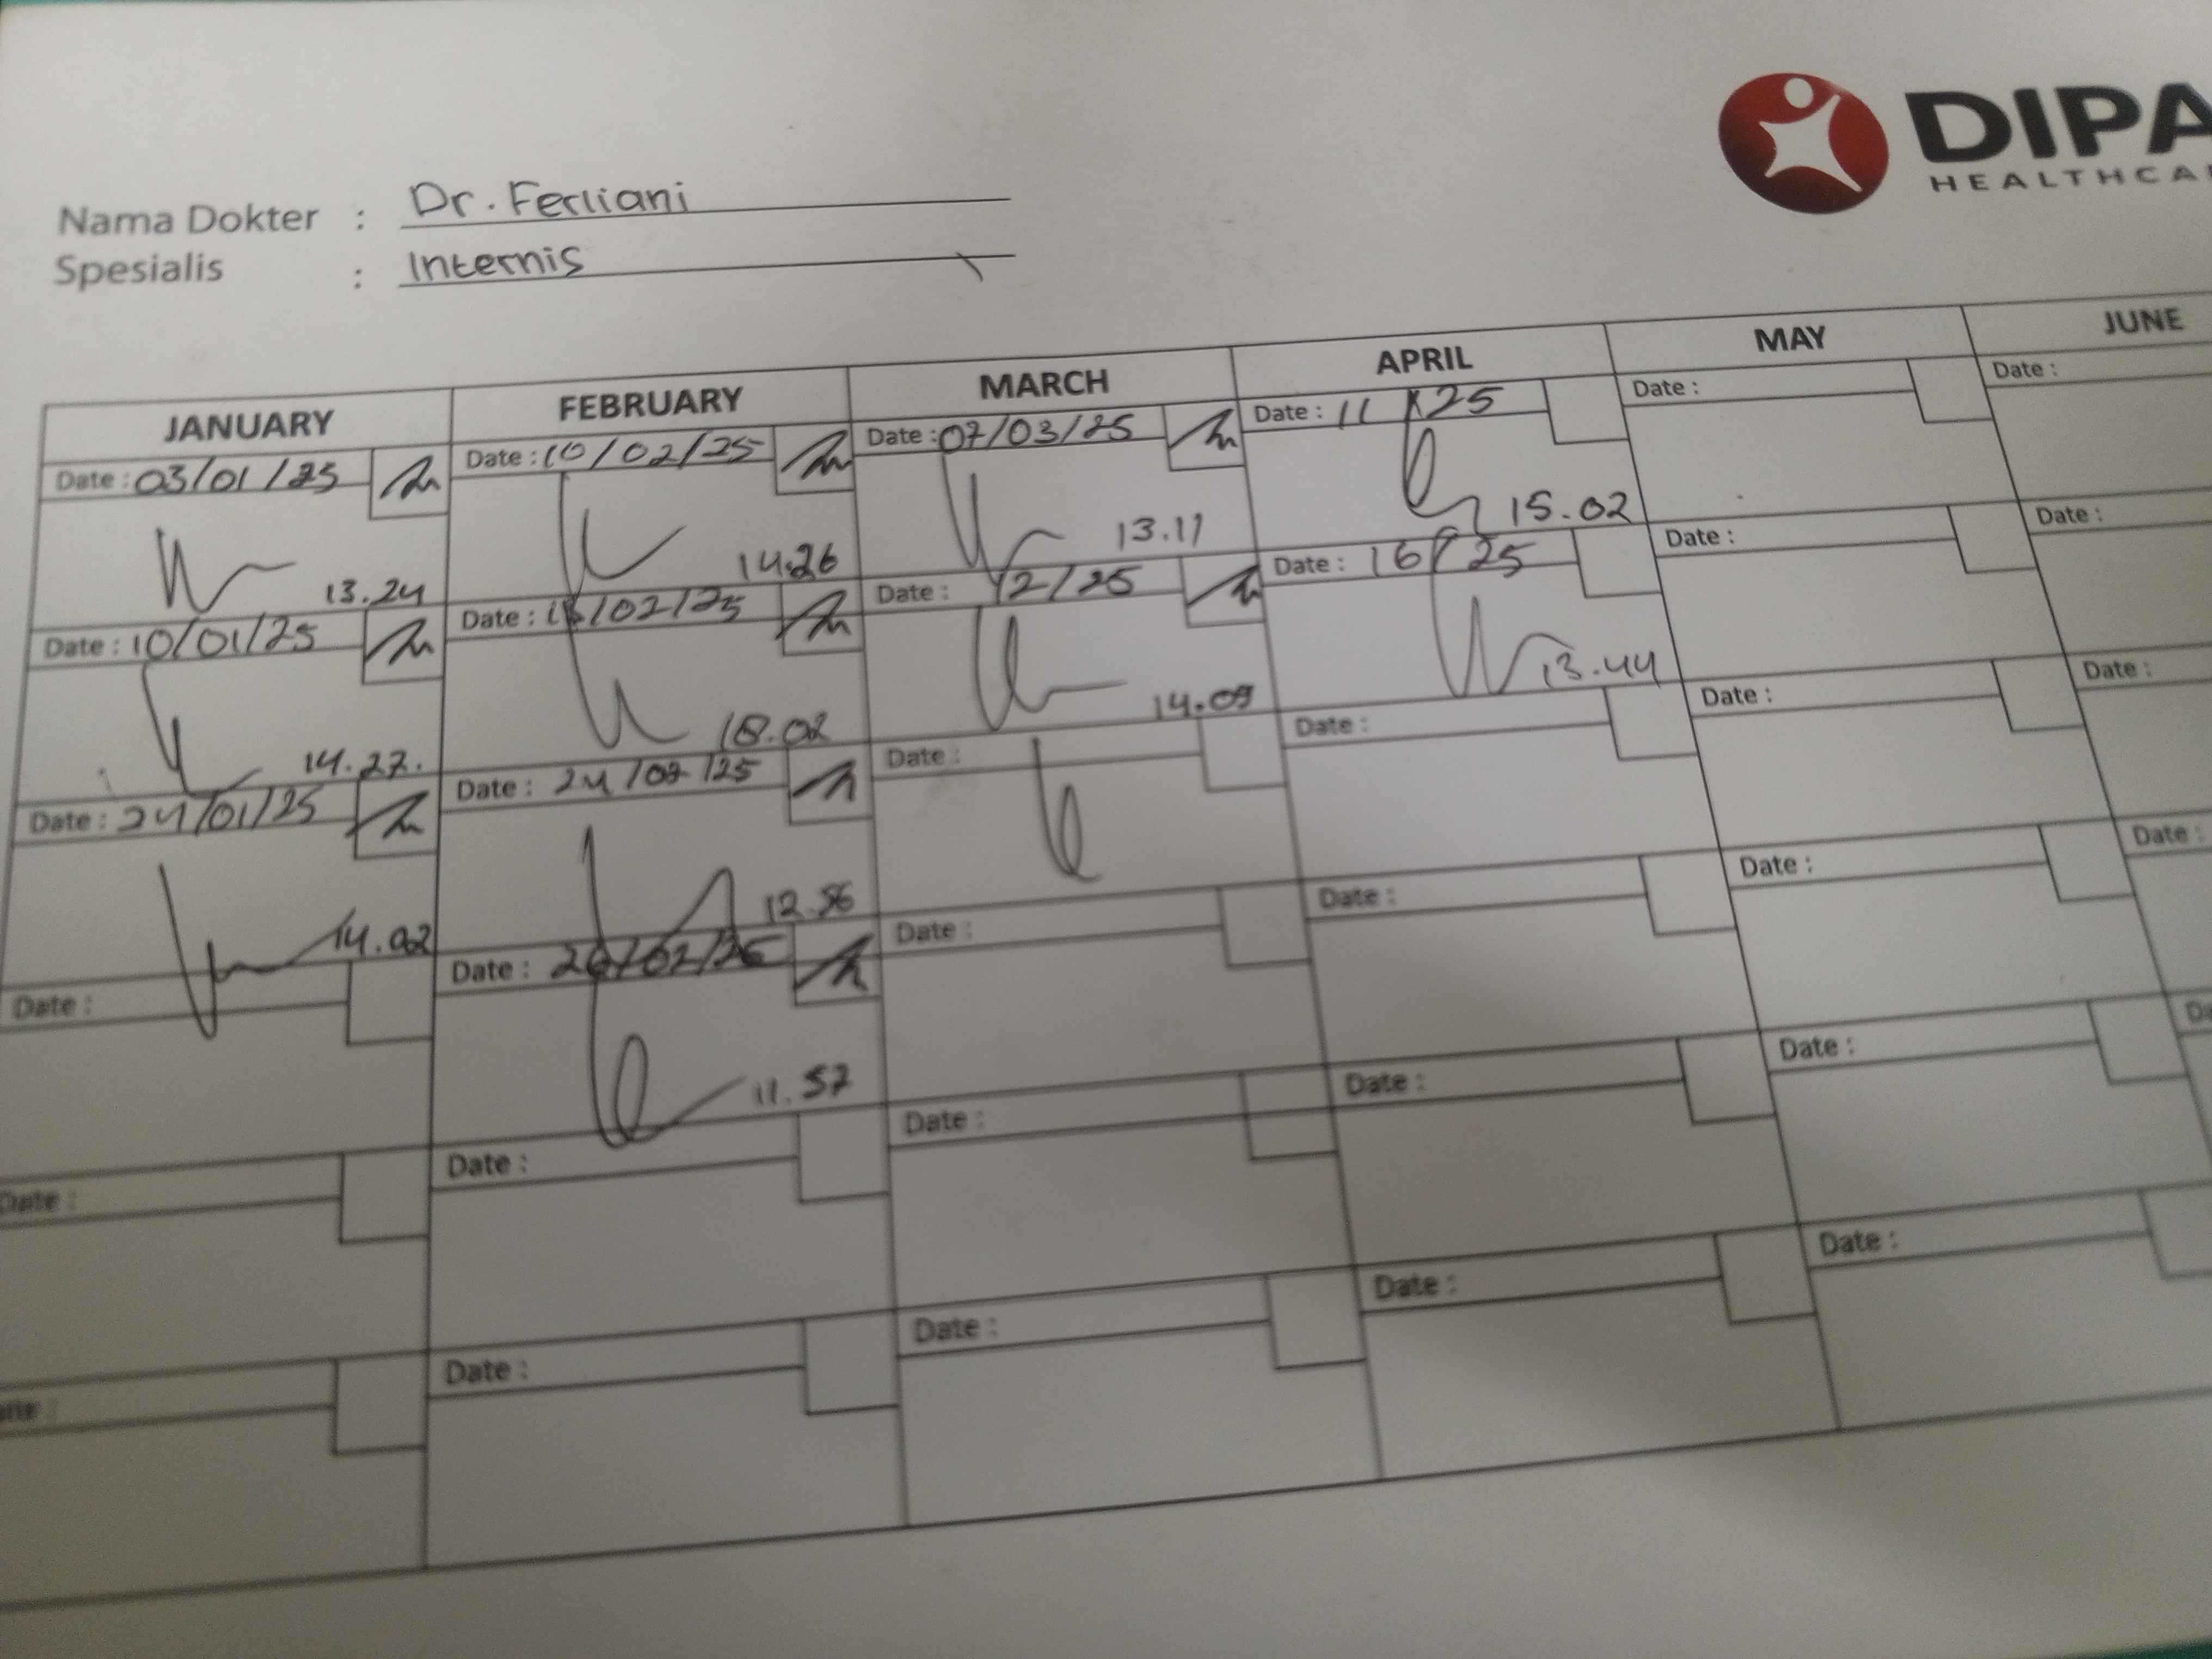 DIPA
HEALTHCA
Nama Dokter : Dr. Ferliani
Spesialis : Internis
JANUARY FEBRUARY MARCH APRIL MAY JUNE
Date : 03/01/25 Date : 10/02/25 Date : 07/03/25 Date : 11 25 Date : Date :
13.24 14.26 13.11 15.02
Date : 10/01/25 Date : /02/25 Date : 12/25 Date : 16 25 Date : Date :
14.27. 18.02 14.09 13.44
Date : 24/01/25 Date : 24/02/25 Date : Date : Date : Date :
14.02 12.56
Date : Date : 26/02/25 Date : Date : Date : Date :
11.57
Date : Date : Date : Date : Date :
Date : Date : Date : Date :